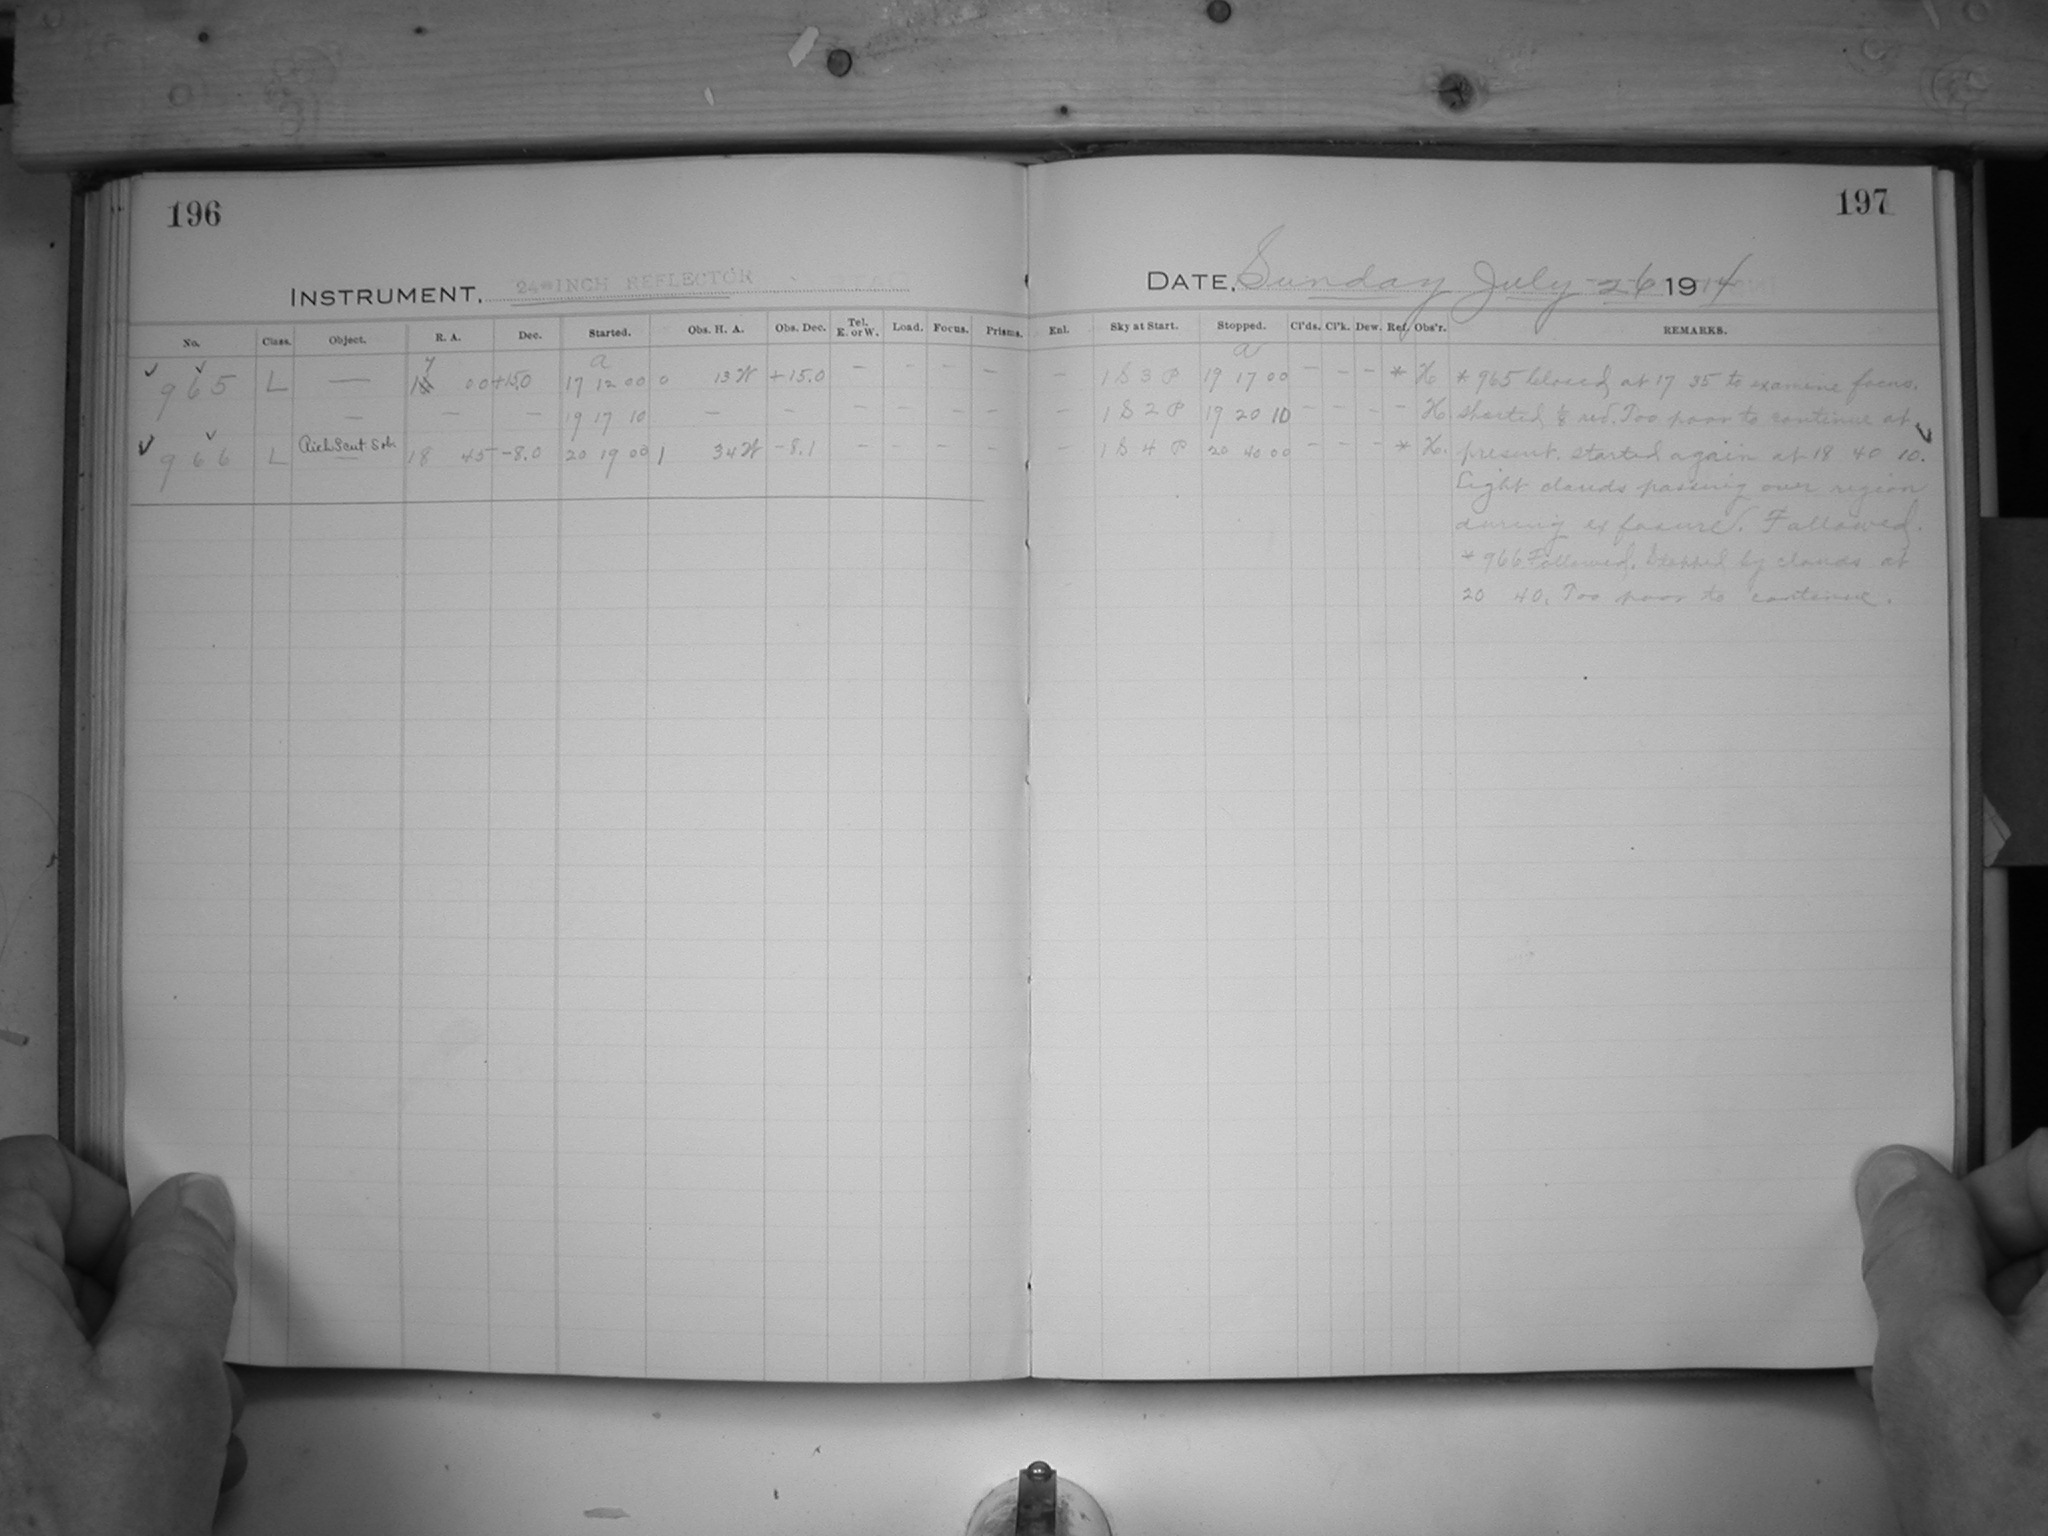 196
197
INSTRUMENT, 24-INCH REFLECTOR
DATE, Sunday July 26 1914
No. Class. Object. R. A. Dec. Started. Obs. H. A. Obs. Dec. Tel. E. or W. Load. Focus. Prisms. Enl. Sky at Start. Stopped. Cl'ds. Cl'k. Dew. Ref. Obs'r. REMARKS.
7 a a
✓ 965 L — 1 00 +15.0 17 12 00 0 13 W +15.0 — — — — — — 1 S 3 P 19 17 00 — — — * H * 965 Closed at 17 35 to examine focus.
— — — 19 17 10 — — — — — — — — 1 S 2 P 19 20 10 — — — — H Too poor to continue at
✓ 966 L Rich Scut Sob. 18 45 -8.0 20 19 00 1 34 W -8.1 — — — — — 1 S 4 P 20 40 00 — — — * H. present. started again at 18 40 10.
Light clouds passing over region
during exposure. Followed.
* 966 Followed. Stopped by clouds at
20 40. Too poor to continue.